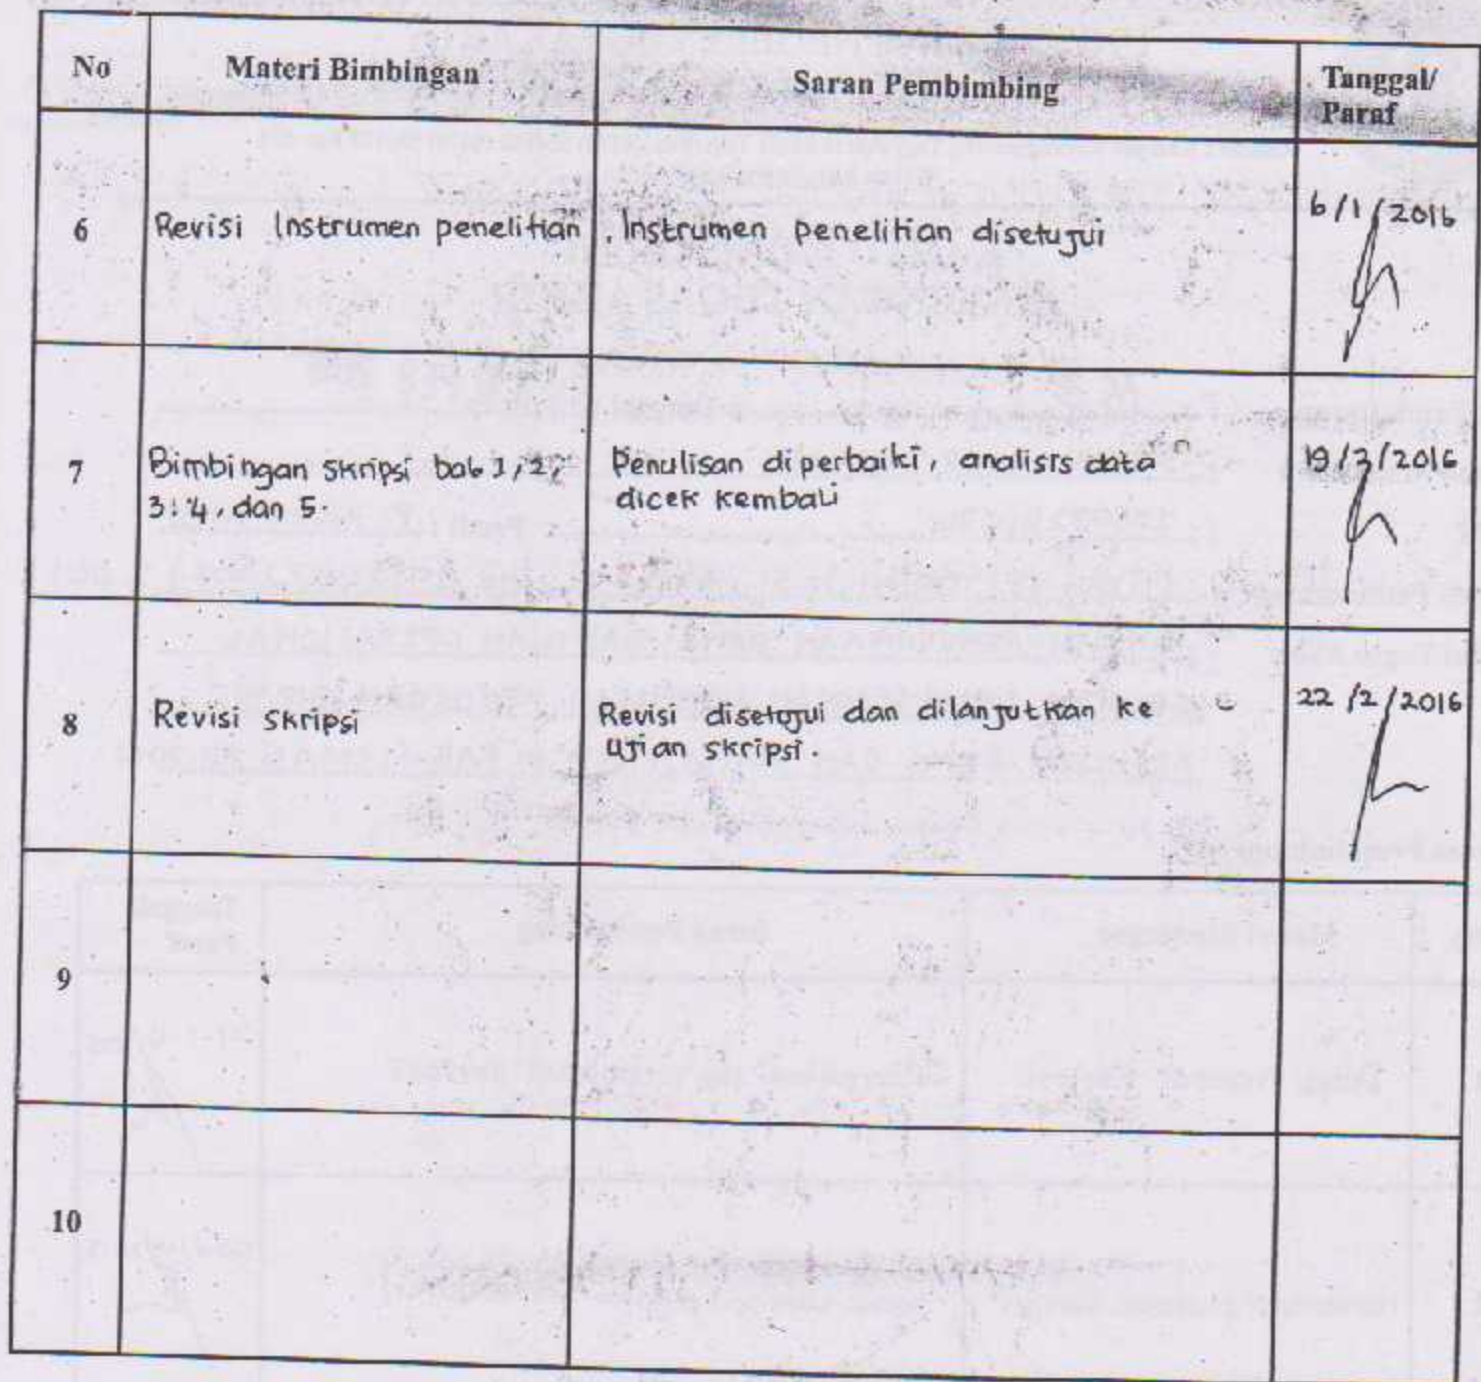 No Materi Bimbingan Saran Pembimbing Tanggal/
Paraf
6 Revisi Instrumen penelitian Instrumen penelitian disetujui 6/1/2016
7 Bimbingan skripsi bab 1, 2, Penulisan diperbaiki, analisis data 19/2/2016
3, 4, dan 5. dicek kembali
8 Revisi skripsi Revisi disetujui dan dilanjutkan ke 22/2/2016
Ujian skripsi.
9
10